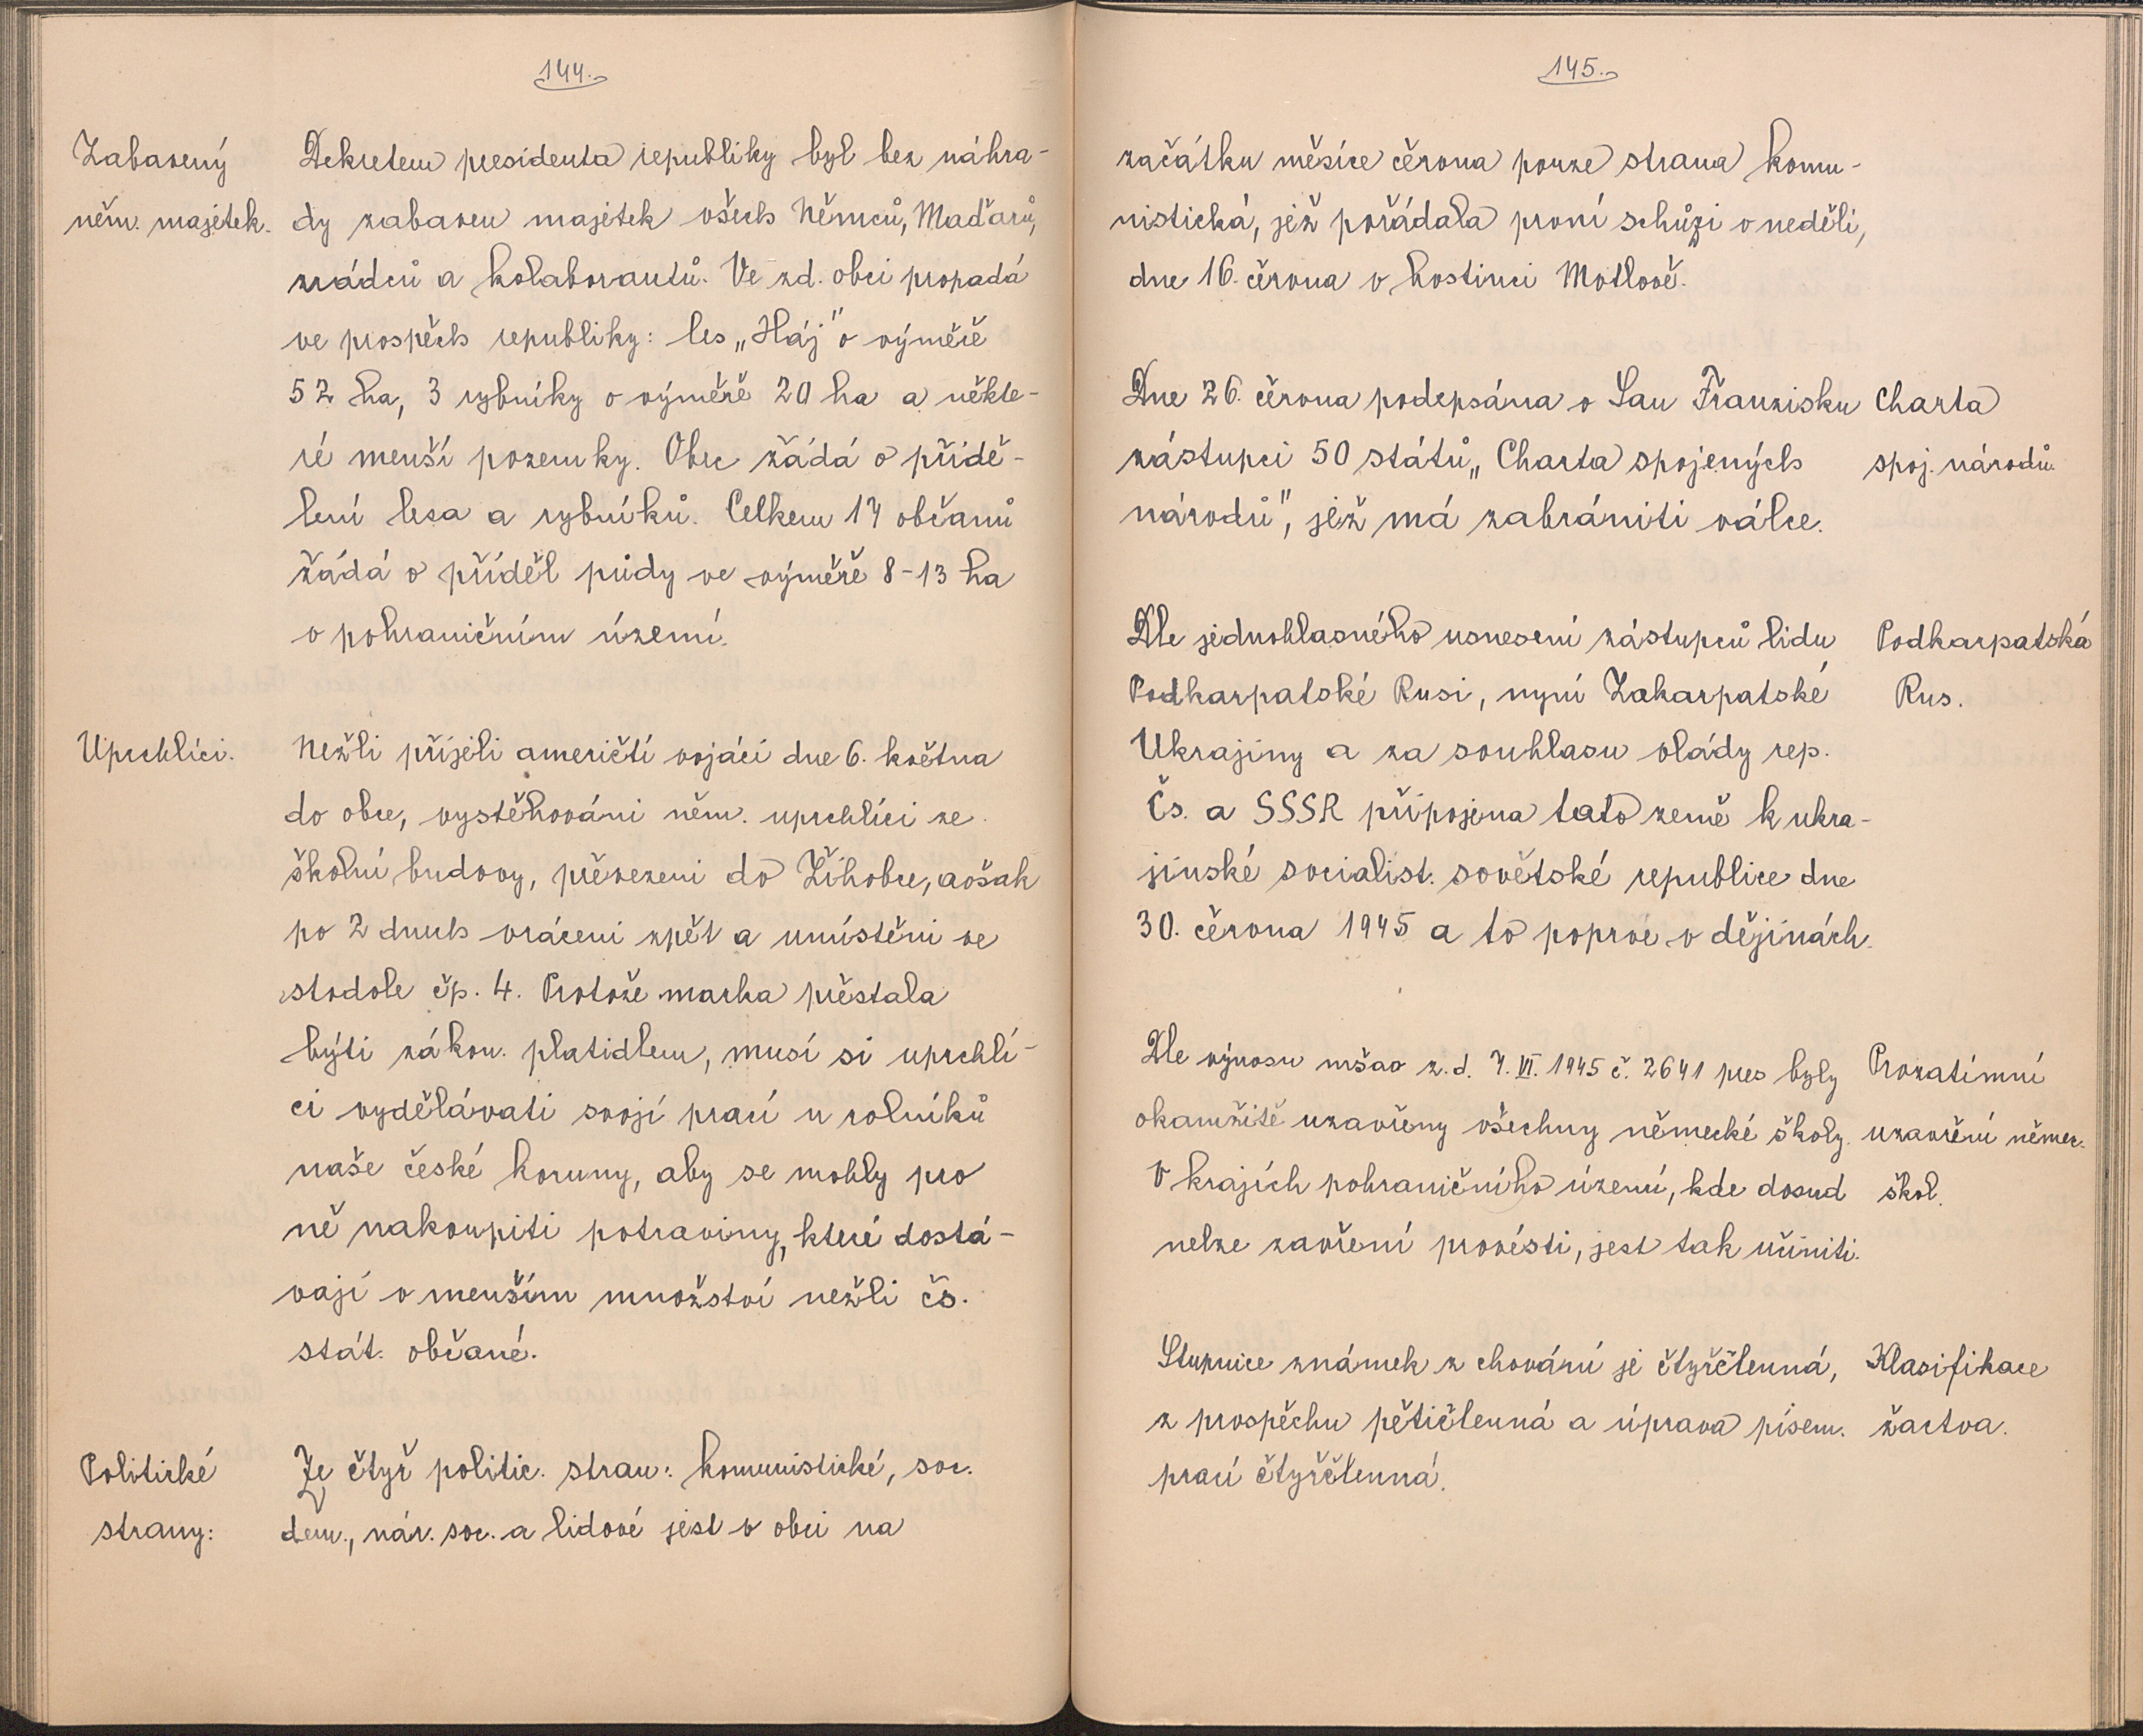 144.
Zabavený
něm. majetek.
Dekretem presidenta republiky byl bez náhra-
dy zabaven majetek všech Němců, Maďarů,
zrádců a kolaborantů. Ve zd. obci propadá
ve prospěch republiky: les „Háj" o výměře
52 ha, 3 rybníky o výměře 20 ha a někte-
ré menší pozemky. Obec žádá o přidě-
lení lesa a rybníků. Celkem 17 občanů
žádá o příděl půdy ve výměře 8-13 ha
v pohraničním území.
Uprchlíci.
Nežli přijeli američtí vojáci dne 6. května
do obce, vystěhováni něm. uprchlíci ze
školní budovy, převezeni do Žihobce, avšak
po 2 dnech vráceni zpět a umístěni ve
stodole čp. 4. Protože marka přestala
býti zákon. platidlem, musí si uprchlí-
ci vydělávati svojí prací u rolníků
naše české koruny, aby se mohly pro
ně nakoupiti potraviny, které dostá-
vají v menším množství nežli čs.
stát. občané.
Politické
strany:
Ze čtyř politic. stran: komunistické, soc.
dem., nár. soc. a lidové jest v obci na
145.
začátku měsíce června pouze strana komu-
nistická, jež pořádala první schůzi v neděli,
dne 16. června v hostinci Motlově.
Dne 26. června podepsána v San Franzisku
zástupci 50 států „Charta spojených
národů", jež má zabrániti válce.
Charta
spoj. národů.
Dle jednohlasného usnesení zástupců lidu
Podkarpatské Rusi, nyní Zakarpatské
Ukrajiny a za souhlasu vlády rep.
Čs. a SSSR připojena tato země k ukra-
jinské socialist. sovětské republice dne
30. června 1945 a to poprvé v dějinách.
Podkarpatská
Rus.
Dle výnosu mšao z.d. 7. VI. 1945 č. 2641 pres byly
okamžitě uzavřeny všechny německé školy.
V krajích pohraničního území, kde dosud
nelze zavření provésti, jest tak učiniti.
Prozatímní
uzavření němec.
škol.
Stupnice známek z chování je čtyřčlenná,
z prospěchu pětičlenná a úprava písem.
prací čtyřčlenná.
Klasifikace
žactva.